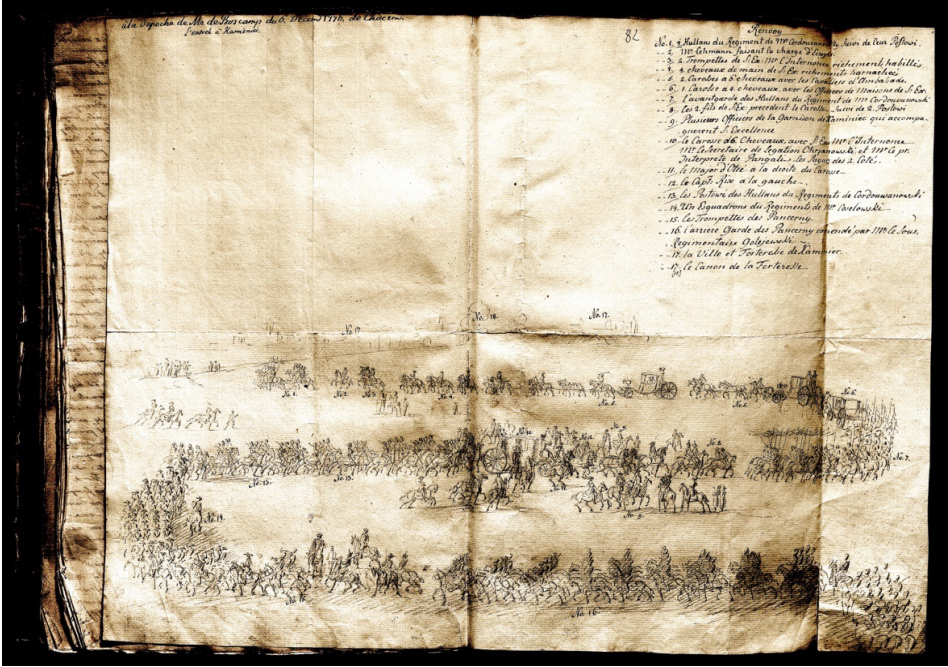 à la Depeche de Mr. de Boscamp du 6. Decem. 1776, de Choczim.
l'entrée à Kaminiec
82
Renvoy
No. 1. 4 Hullans du Regiment de Mr. Suivi de leur Postowi.
2. Mr. Lehmann faisant la charge d'Ecuyer
3. 2. Trompettes de S. Ex. Mr. l'Internonce richements habillés
4. 4 cheveaux de main de S. Ex. richements harnachés
5. 2. Carosses a 6 cheveaux avec les Cavaliers d'Ambassade.
6. 1. Carosse a 4. cheveaux, avec les Officiers de Maisons de S. Ex.
7. l'avantgarde des Hullans du Regiment de Mr. Cordouwanowski
8. Les 2 fils de S. Ex. precedent le Carosse Suivi de 2. Postowi
9. Plusieurs Officiers de la Garnison de Kaminiec qui accompa-
gnerent S. Excellence
10. le Carosse a 6. Cheveaux, avec S. Ex. Mr. l'Internonce
Mr. le Secretaire de Legation Chrzanowski, et Mr. le pr.
Interprete de Pangali. les Pages des 2. Coté.
11. le Major d'Oté a la droite du Carosse
12. le Capt. Rix a la gauche.
13. les Postowi des Hullans du Regiments de Cordouwanowski
14. Un Esquadrons du Regiments de Mr.
15. les Trompettes des Pancerny
16. l'arriere Garde des Pancerny comendé par Mr. le Sous.
Regimentaire Golejewski
17. la Ville et Forteresse de Kaminiec.
17. le Canon de la Forteresse
No. 17.
No. 18.
No. 17.
No. 1.
No. 5.
No. 6.
No. 7.
No. 13.
No. 14.
No. 9.
No. 16